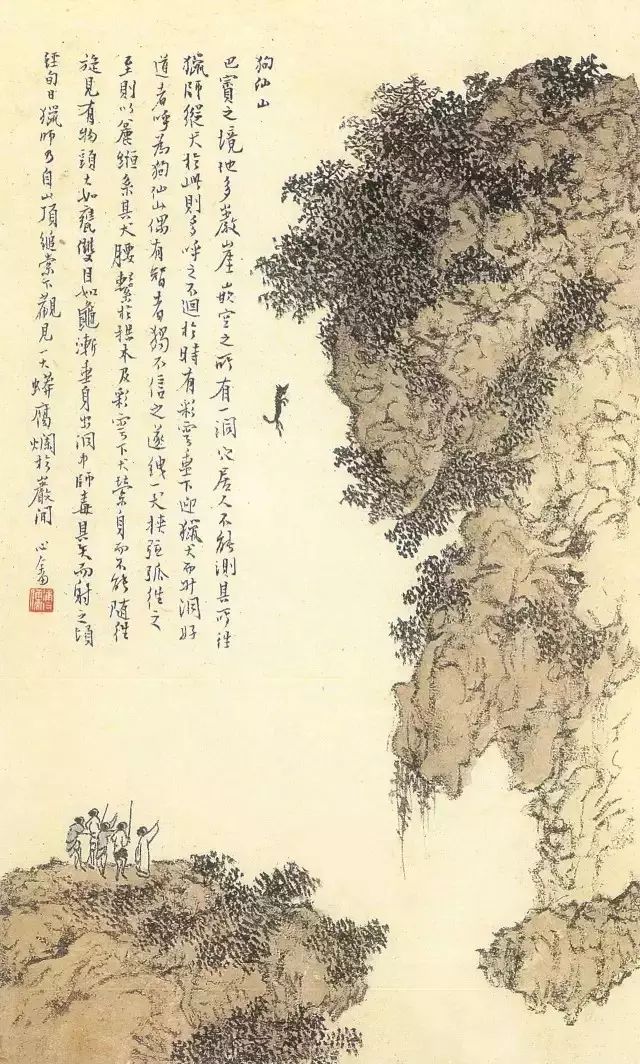 狗仙山
巴賨之境地多巖崖嵌空之所有一洞穴居人不能測其所往
獵師縱犬於此則多呼之不迴於時有彩雲垂下迎獵犬而升洞好
道者呼為狗仙山偶有智者獨不信之遂絏犬挾弦弧往之
至則以麤絙系其犬腰繫於拱木及彩雲下犬縈身而不能隨往
旋見有物頭大如甕雙目如龜漸垂身出洞中師毒其矢而射之頃
經旬日獵師乃自山頂縋索下觀見一大蟒腐爛於巖間 心畬
溥儒